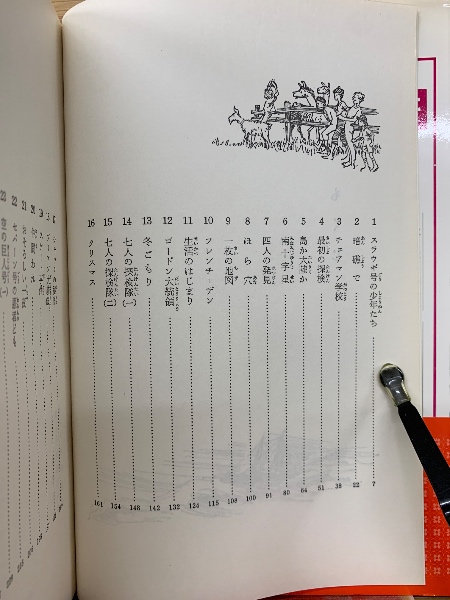 1 スラウギ号の少年たち 7
2 暗礁で 22
3 チェアマン学校 38
4 最初の探検 51
5 島か大陸か 64
6 南十字星 80
7 四人の発見 91
8 ほら穴 100
9 一枚の地図 108
10 フレンチ・デン 115
11 生活のはじまり 124
12 ゴードン大統領 132
13 冬ごもり 142
14 七人の探検隊(一) 148
15 七人の探検隊(二) 154
16 クリスマス 161
21 おそろしい
22 セバーン号
23 空の巨人号(一)